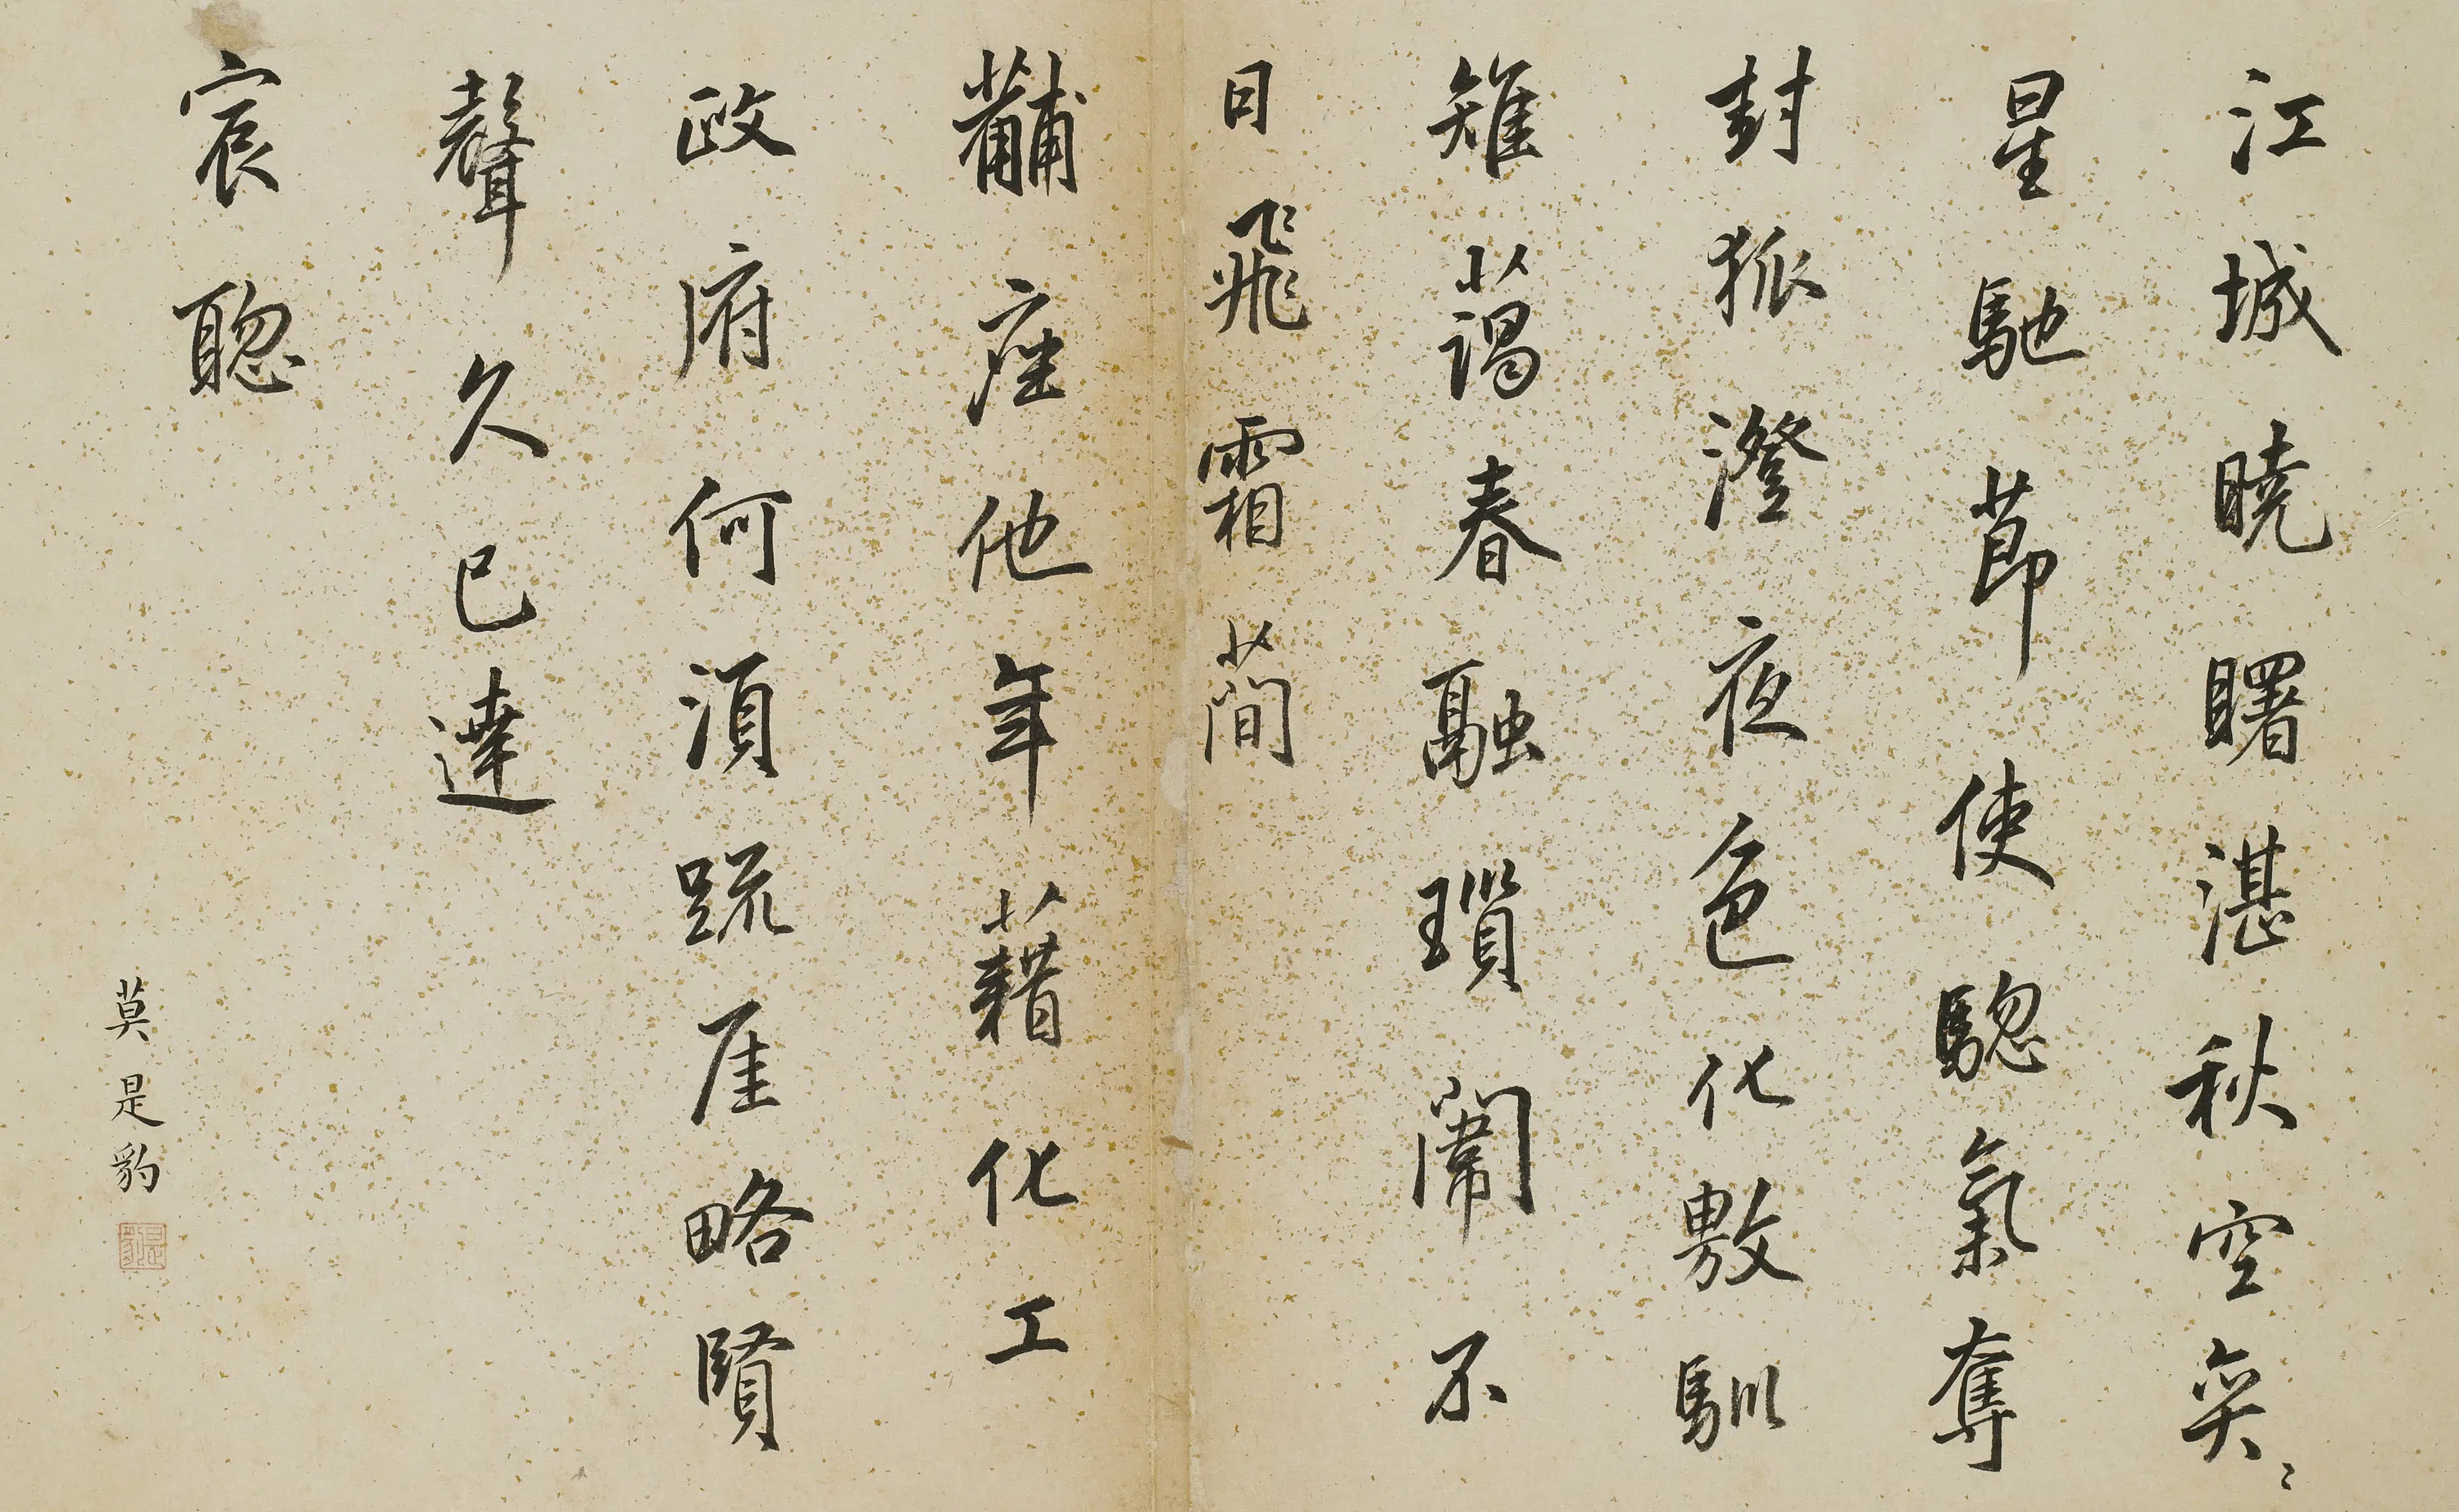 江城曉曙湛秋空奕〻
星馳節使驄氣奪
封狐澄夜色化敷馴
雉藹春融瑣闈不
日飛霜簡
黼座他年藉化工
政府何須疏厓略賢
聲久已達
宸聰
莫是豹
是豹